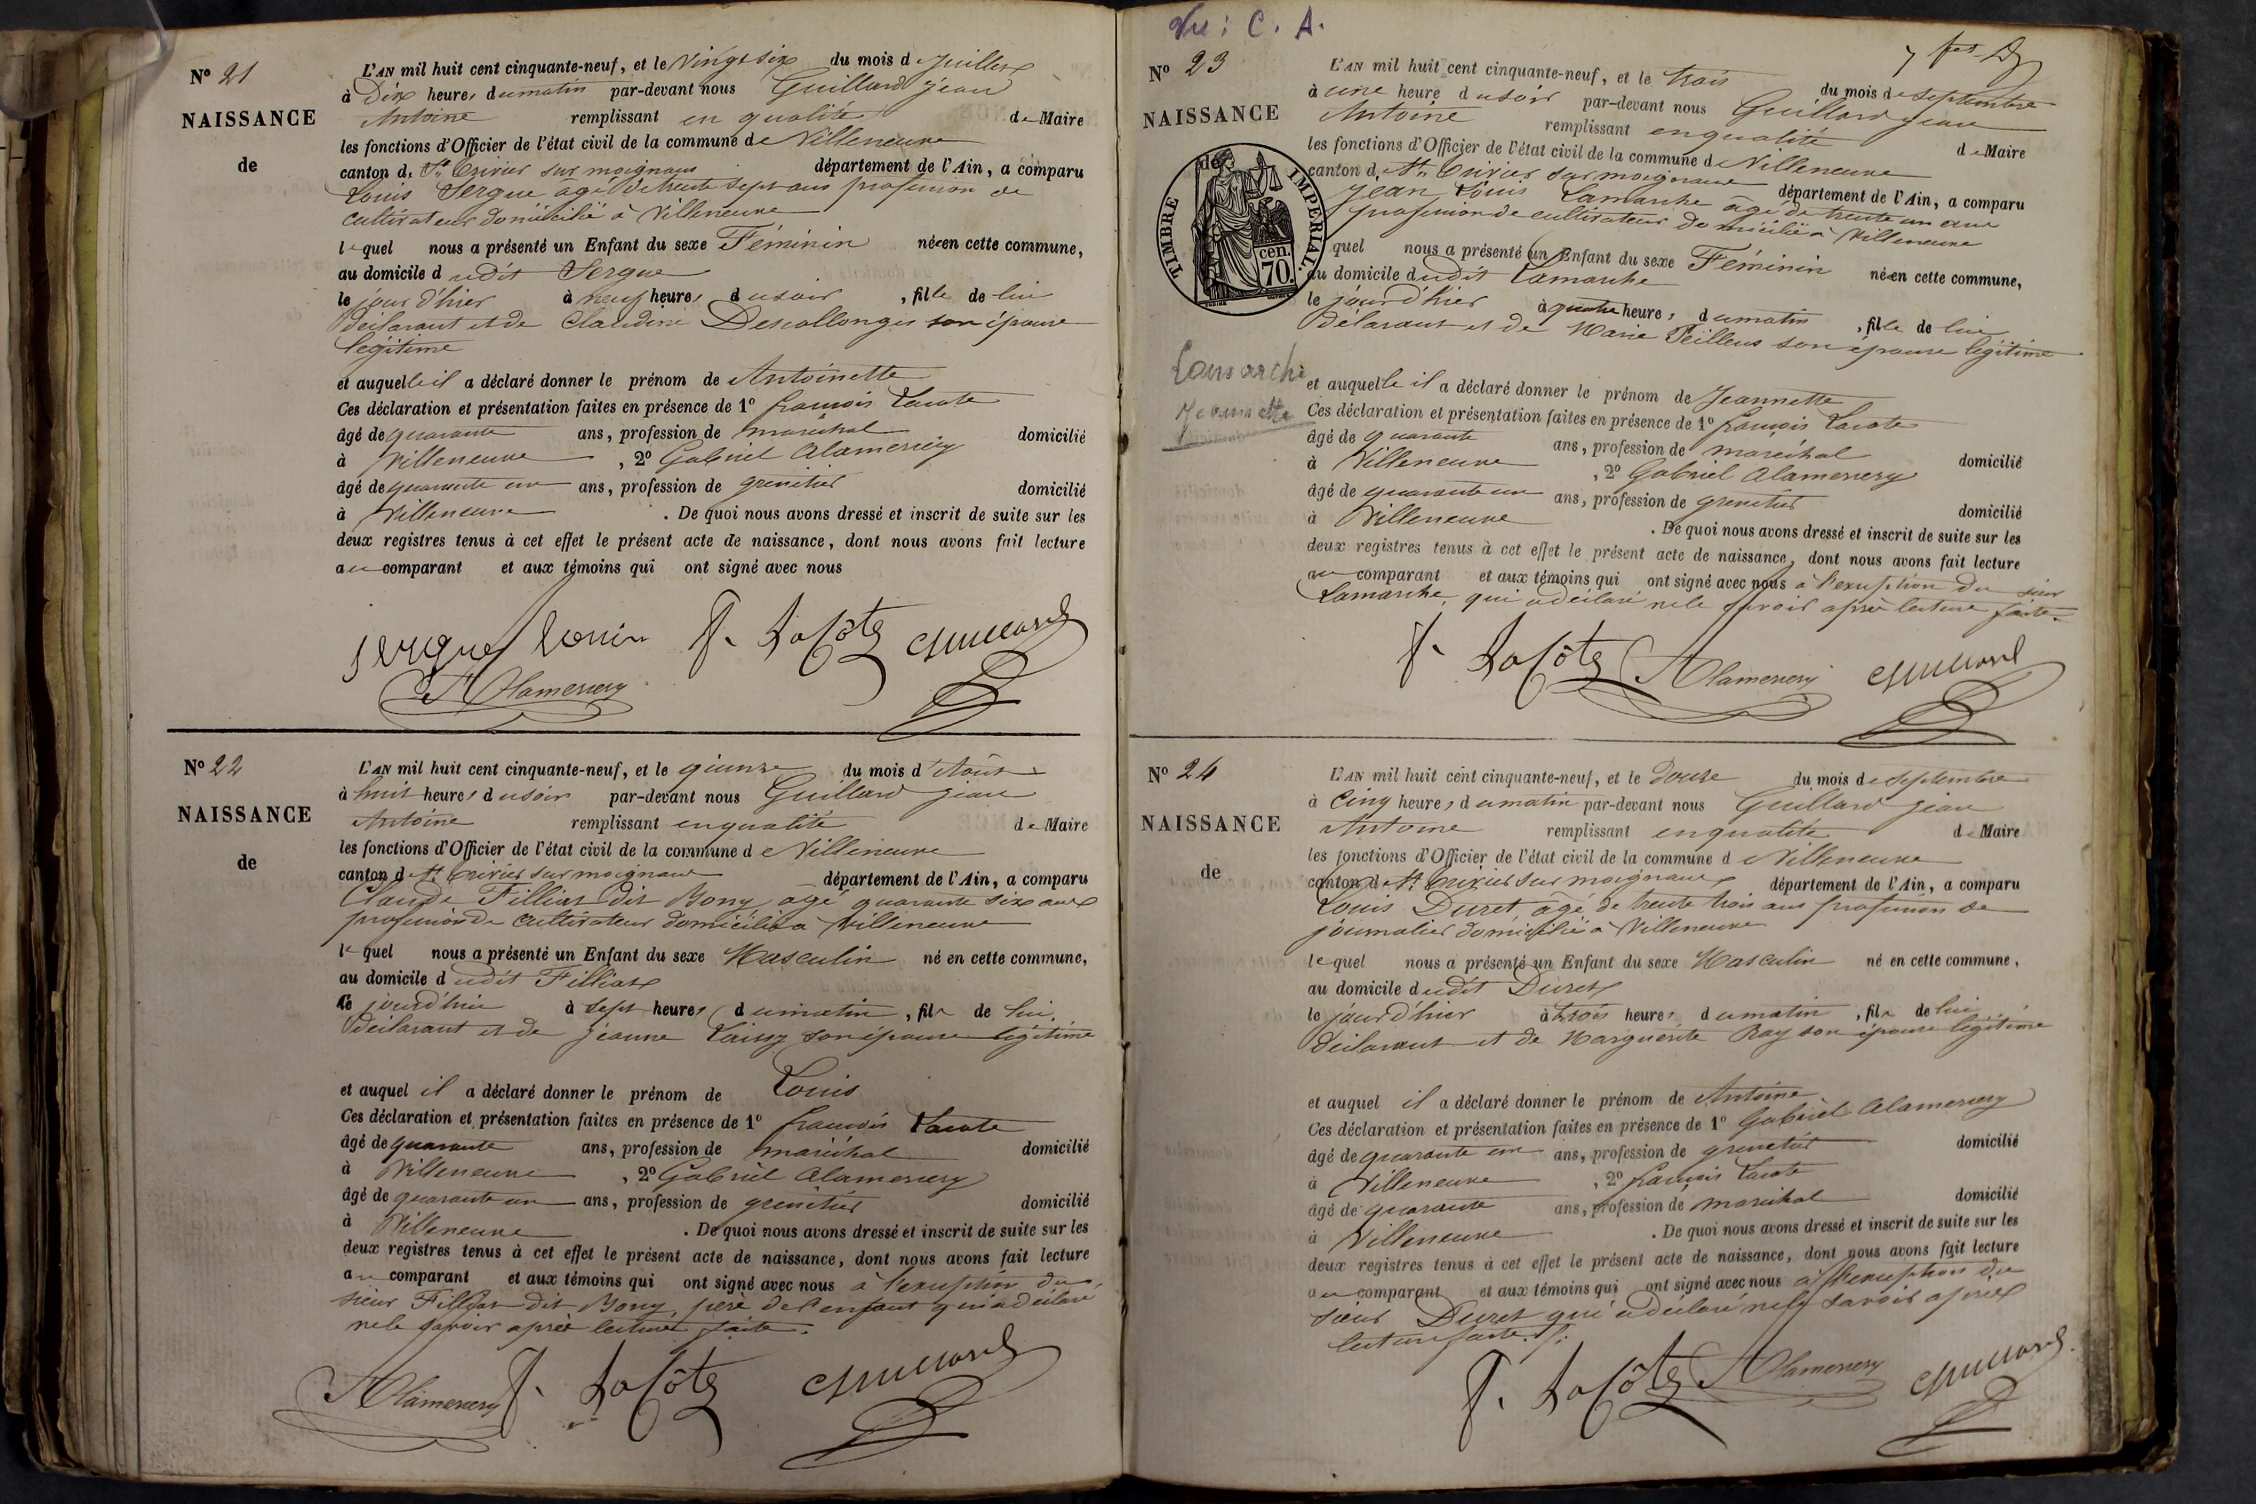 N° 21
NAISSANCE
de
L'AN mil huit cent cinquante-neuf, et le vingt six du mois de juillet
à Dix heures du matin par-devant nous Guillard jean
Antoine remplissant en qualité de Maire
les fonctions d'Officier de l'état civil de la commune de Villeneuve
canton de St Trivier sur moignans département de l'Ain, a comparu
Louis Sergue agé de trente sept ans profession de
cultivateur domicilié à Villeneuve
lequel nous a présenté un Enfant du sexe Féminin née en cette commune,
au domicile dudit Sergue
le jour d'hier à neuf heures du soir, fille de lui
déclarant et de Claudine Descollonges son épouse
légitime
et auquelle il a déclaré donner le prénom de Antoinette
Ces déclaration et présentation faites en présence de 1° françois Lacote
âgé de quarante ans, profession de maréchal domicilié
à Villeneuve, 2° Gabriel Alamercery
âgé de quarante un ans, profession de grenetier domicilié
à Villeneuve. De quoi nous avons dressé et inscrit de suite sur les
deux registres tenus à cet effet le présent acte de naissance, dont nous avons fait lecture
au comparant et aux témoins qui ont signé avec nous
sergue louis F. LaCôte Guillard
Alamercery
N° 22
NAISSANCE
de
L'AN mil huit cent cinquante-neuf, et le quinze du mois d'Août
à huit heures du soir par-devant nous Guillard jean
Antoine remplissant en qualité de Maire
les fonctions d'Officier de l'état civil de la commune de Villeneuve
canton de St Trivier sur moignans département de l'Ain, a comparu
Claude Filliat dit Bony agé quarante six ans
profession de cultivateur domicilié à Villeneuve
lequel nous a présenté un Enfant du sexe Masculin né en cette commune,
au domicile dudit Filliat
Ce jourd'hui à sept heures du matin, fils de lui
déclarant et de jeanne son épouse légitime
et auquel il a déclaré donner le prénom de Louis
Ces déclaration et présentation faites en présence de 1° françois Lacote
âgé de quarante ans, profession de maréchal domicilié
à Villeneuve, 2° Gabriel Alamercery
âgé de quarante un ans, profession de grenetier domicilié
à Villeneuve. De quoi nous avons dressé et inscrit de suite sur les
deux registres tenus à cet effet le présent acte de naissance, dont nous avons fait lecture
au comparant et aux témoins qui ont signé avec nous à l'exception du
sieur Filliat dit Bony, père de l'enfant qui a déclaré
ne le savoir après lecture faite.
Alamercery F. LaCôte Guillard
Vu : C. A.
N° 23
NAISSANCE
de
TIMBRE IMPÉRIAL.
cen. 70.
Lamarche
Jeannette
L'AN mil huit cent cinquante-neuf, et le trois du mois de septembre
à une heure du soir par-devant nous Guillard jean
Antoine remplissant en qualité de Maire
les fonctions d'Officier de l'état civil de la commune de Villeneuve
canton de St Trivier sur moignans département de l'Ain, a comparu
jean Louis Lamarche âgé de trente un ans
profession de cultivateur domicilié à Villeneuve
quel nous a présenté un Enfant du sexe Féminin née en cette commune,
au domicile dudit Lamarche
le jour d'hier à quatre heures du matin, fille de lui
Déclarant et de Marie son épouse légitime
et auquelle il a déclaré donner le prénom de Jeannette
Ces déclaration et présentation faites en présence de 1° françois Lacote
âgé de quarante ans, profession de maréchal domicilié
à Villeneuve, 2° Gabriel Alamercery
âgé de quarante un ans, profession de grenetier domicilié
à Villeneuve. De quoi nous avons dressé et inscrit de suite sur les
deux registres tenus à cet effet le présent acte de naissance, dont nous avons fait lecture
au comparant et aux témoins qui ont signé avec nous à l'exception du sieur
Lamarche, qui a déclaré ne le savoir après lecture faite.
F. LaCôte Alamercery Guillard
N° 24
NAISSANCE
de
L'AN mil huit cent cinquante-neuf, et le Douze du mois de septembre
à Cinq heures du matin par-devant nous Guillard jean
Antoine remplissant en qualité de Maire
les fonctions d'Officier de l'état civil de la commune de Villeneuve
canton de St Trivier sur moignans département de l'Ain, a comparu
Louis Duret âgé de trente trois ans profession de
journalier domicilié à Villeneuve
lequel nous a présenté un Enfant du sexe Masculin né en cette commune,
au domicile dudit Duret
le jour d'hier à trois heures du matin, fils de lui
déclarant et de Marguerite Ray son épouse légitime
et auquel il a déclaré donner le prénom de Antoine
Ces déclaration et présentation faites en présence de 1° Gabriel Alamercery
âgé de quarante un ans, profession de grenetier domicilié
à Villeneuve, 2° françois Lacote
âgé de quarante ans, profession de maréchal domicilié
à Villeneuve. De quoi nous avons dressé et inscrit de suite sur les
deux registres tenus à cet effet le présent acte de naissance, dont nous avons fait lecture
au comparant et aux témoins qui ont signé avec nous à l'exception du
sieur Duret qui a déclaré ne le savoir après
lecture faite.
F. LaCôte Alamercery Guillard